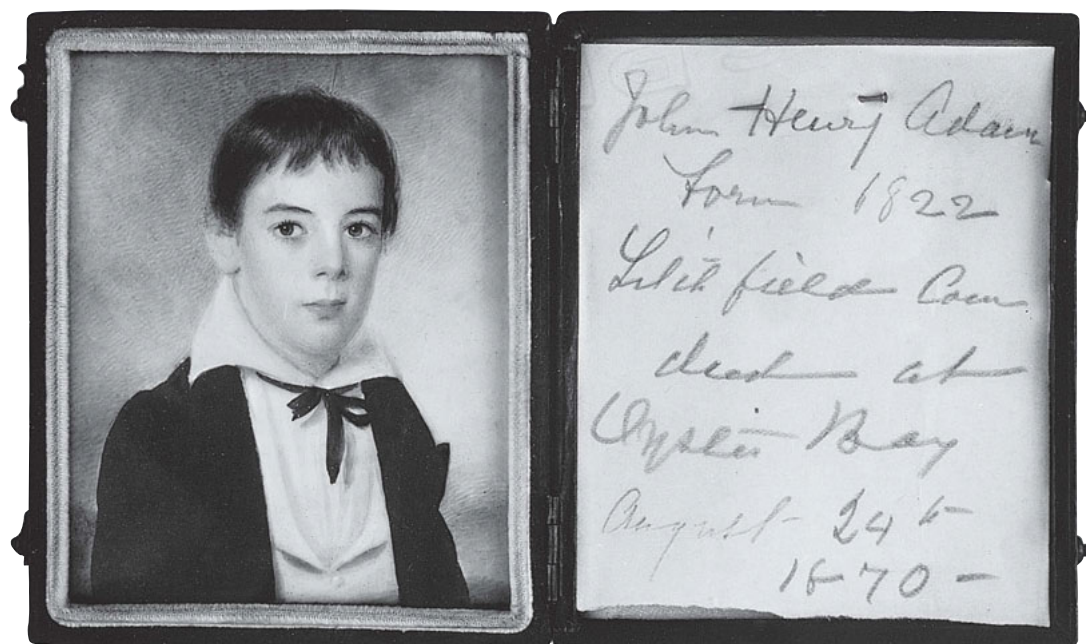 John Henry Adam
born 1822
Litchfield Conn
died at
Oyster Bay
August 24th
1870 -